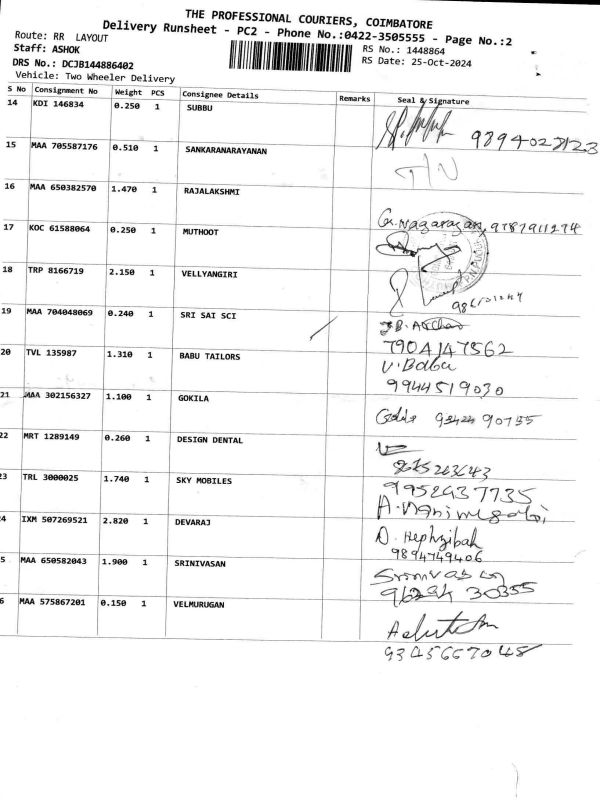 THE PROFESSIONAL COURIERS, COIMBATORE
Delivery Runsheet - PC2 - Phone No.:0422-3505555 - Page No.:2
Route: RR LAYOUT
RS No.: 1448864
Staff: ASHOK
RS Date: 25-Oct-2024
DRS No.: DCJB144886402
Vehicle: Two Wheeler Delivery
S No Consignment No Weight PCS Consignee Details Remarks Seal & Signature
14 KDI 146834 0.250 1 SUBBU
9894028123
15 MAA 705587176 0.510 1 SANKARANARAYANAN
16 MAA 650382570 1.470 1 RAJALAKSHMI
G. Nagarajan, 9787911274
17 KOC 61588064 0.250 1 MUTHOOT
18 TRP 8166719 2.150 1 VELLYANGIRI
19 MAA 704048069 0.240 1 SRI SAI SCI
7904147562
20 TVL 135987 1.310 1 BABU TAILORS
V. Babu
9944519030
21 MAA 302156327 1.100 1 GOKILA
22 MRT 1289149 0.260 1 DESIGN DENTAL
23 TRL 3000025 1.740 1 SKY MOBILES
9952437735
24 IXM 507269521 2.820 1 DEVARAJ
D. Hephzibah
9894749406
5 MAA 650582043 1.900 1 SRINIVASAN
Srinivasan
6 MAA 575867201 0.150 1 VELMURUGAN